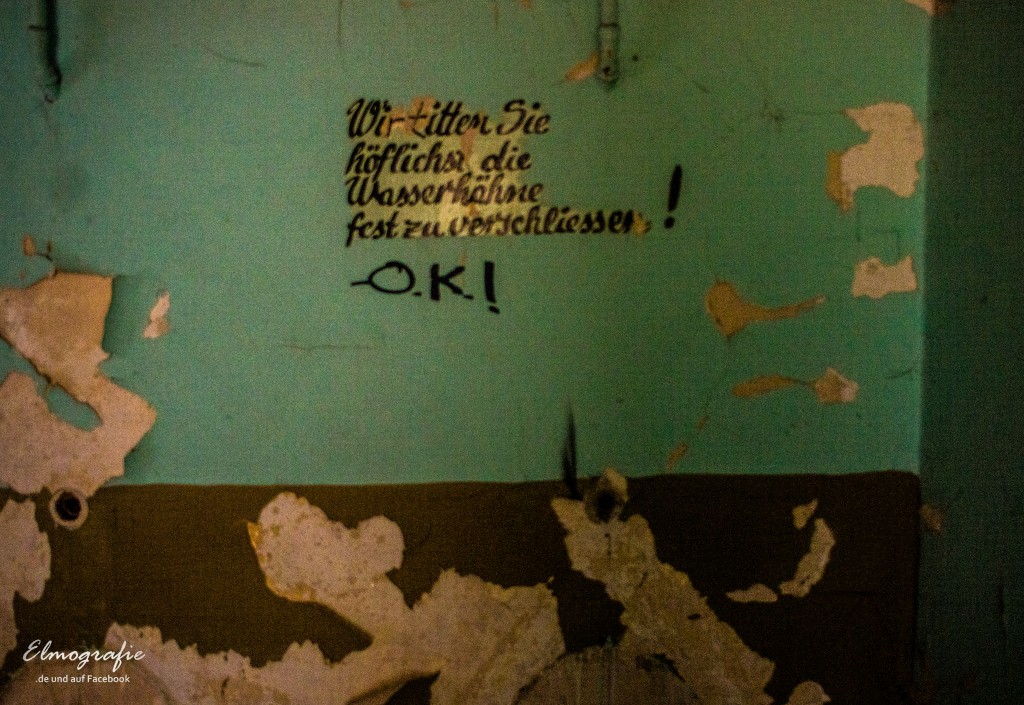 Wir bitten Sie
höflichst die
Wasserhähne
fest zu verschliessen !
O.K.!
Elmografie
.de und auf Facebook